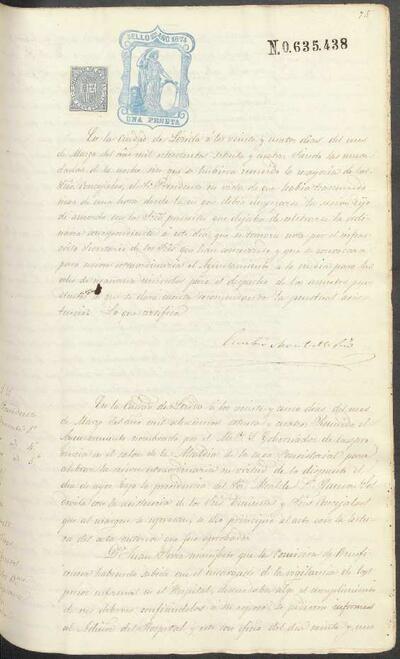 75
SELLO AÑO 1874
N.0.635.438
UNA PESETA
En la Ciudad de Lérida á los veinte y cuatro dias del mes
de Marzo del año mil ochocientos setenta y cuatro Siendo las nueve
dadas de la noche sin que se hubiera reunido la mayoria de los
Sres Concejales, el Sr Presidente en vista de que habia transcurrido
mas de una hora desde la en que debia empezarse la sesion dijo
de acuerdo con los Sres presentes que dejaba de celebrarse la ordi-
naria correspondiente á este dia, que se tomara nota por el infras-
crito Secretario de los Sres que han concurrido y que se convocara
para sesion extraordinaria al Ayuntamiento á la
ocho de mañana miercoles para el despacho de los asuntos pen-
dientes
Lo que certifico
En la Ciudad de Lérida á los veinte y cinco dias del mes
de Marzo del año mil ochocientos setenta y cuatro Reunido el
Ayuntamiento convocado por el M. I. S. Gobernador de la pro-
vincia en el salon de la Alcaldia de la casa Consistorial para
celebrar la sesion extraordinaria en virtud de lo dispuesto el
dia de ayer bajo la presidencia del Sor Alcalde D. Ramon
con la asistencia de los Sres Tenientes y Sres Concejales
que al margen se espresan, se dio principio al acto con la lectu-
ra del acta anterior que fue aprobada
D. Juan manifestó que la Comision de Benefi-
cencia habiendo sabido que el encargado de la vigilancia de los
presos enfermos en el Hospital, descuidaba algo el cumplimiento
de sus deberes confiandolos á su esposa le pidieron informes
al Admor del Hospital y este con oficio del dia veinte y uno